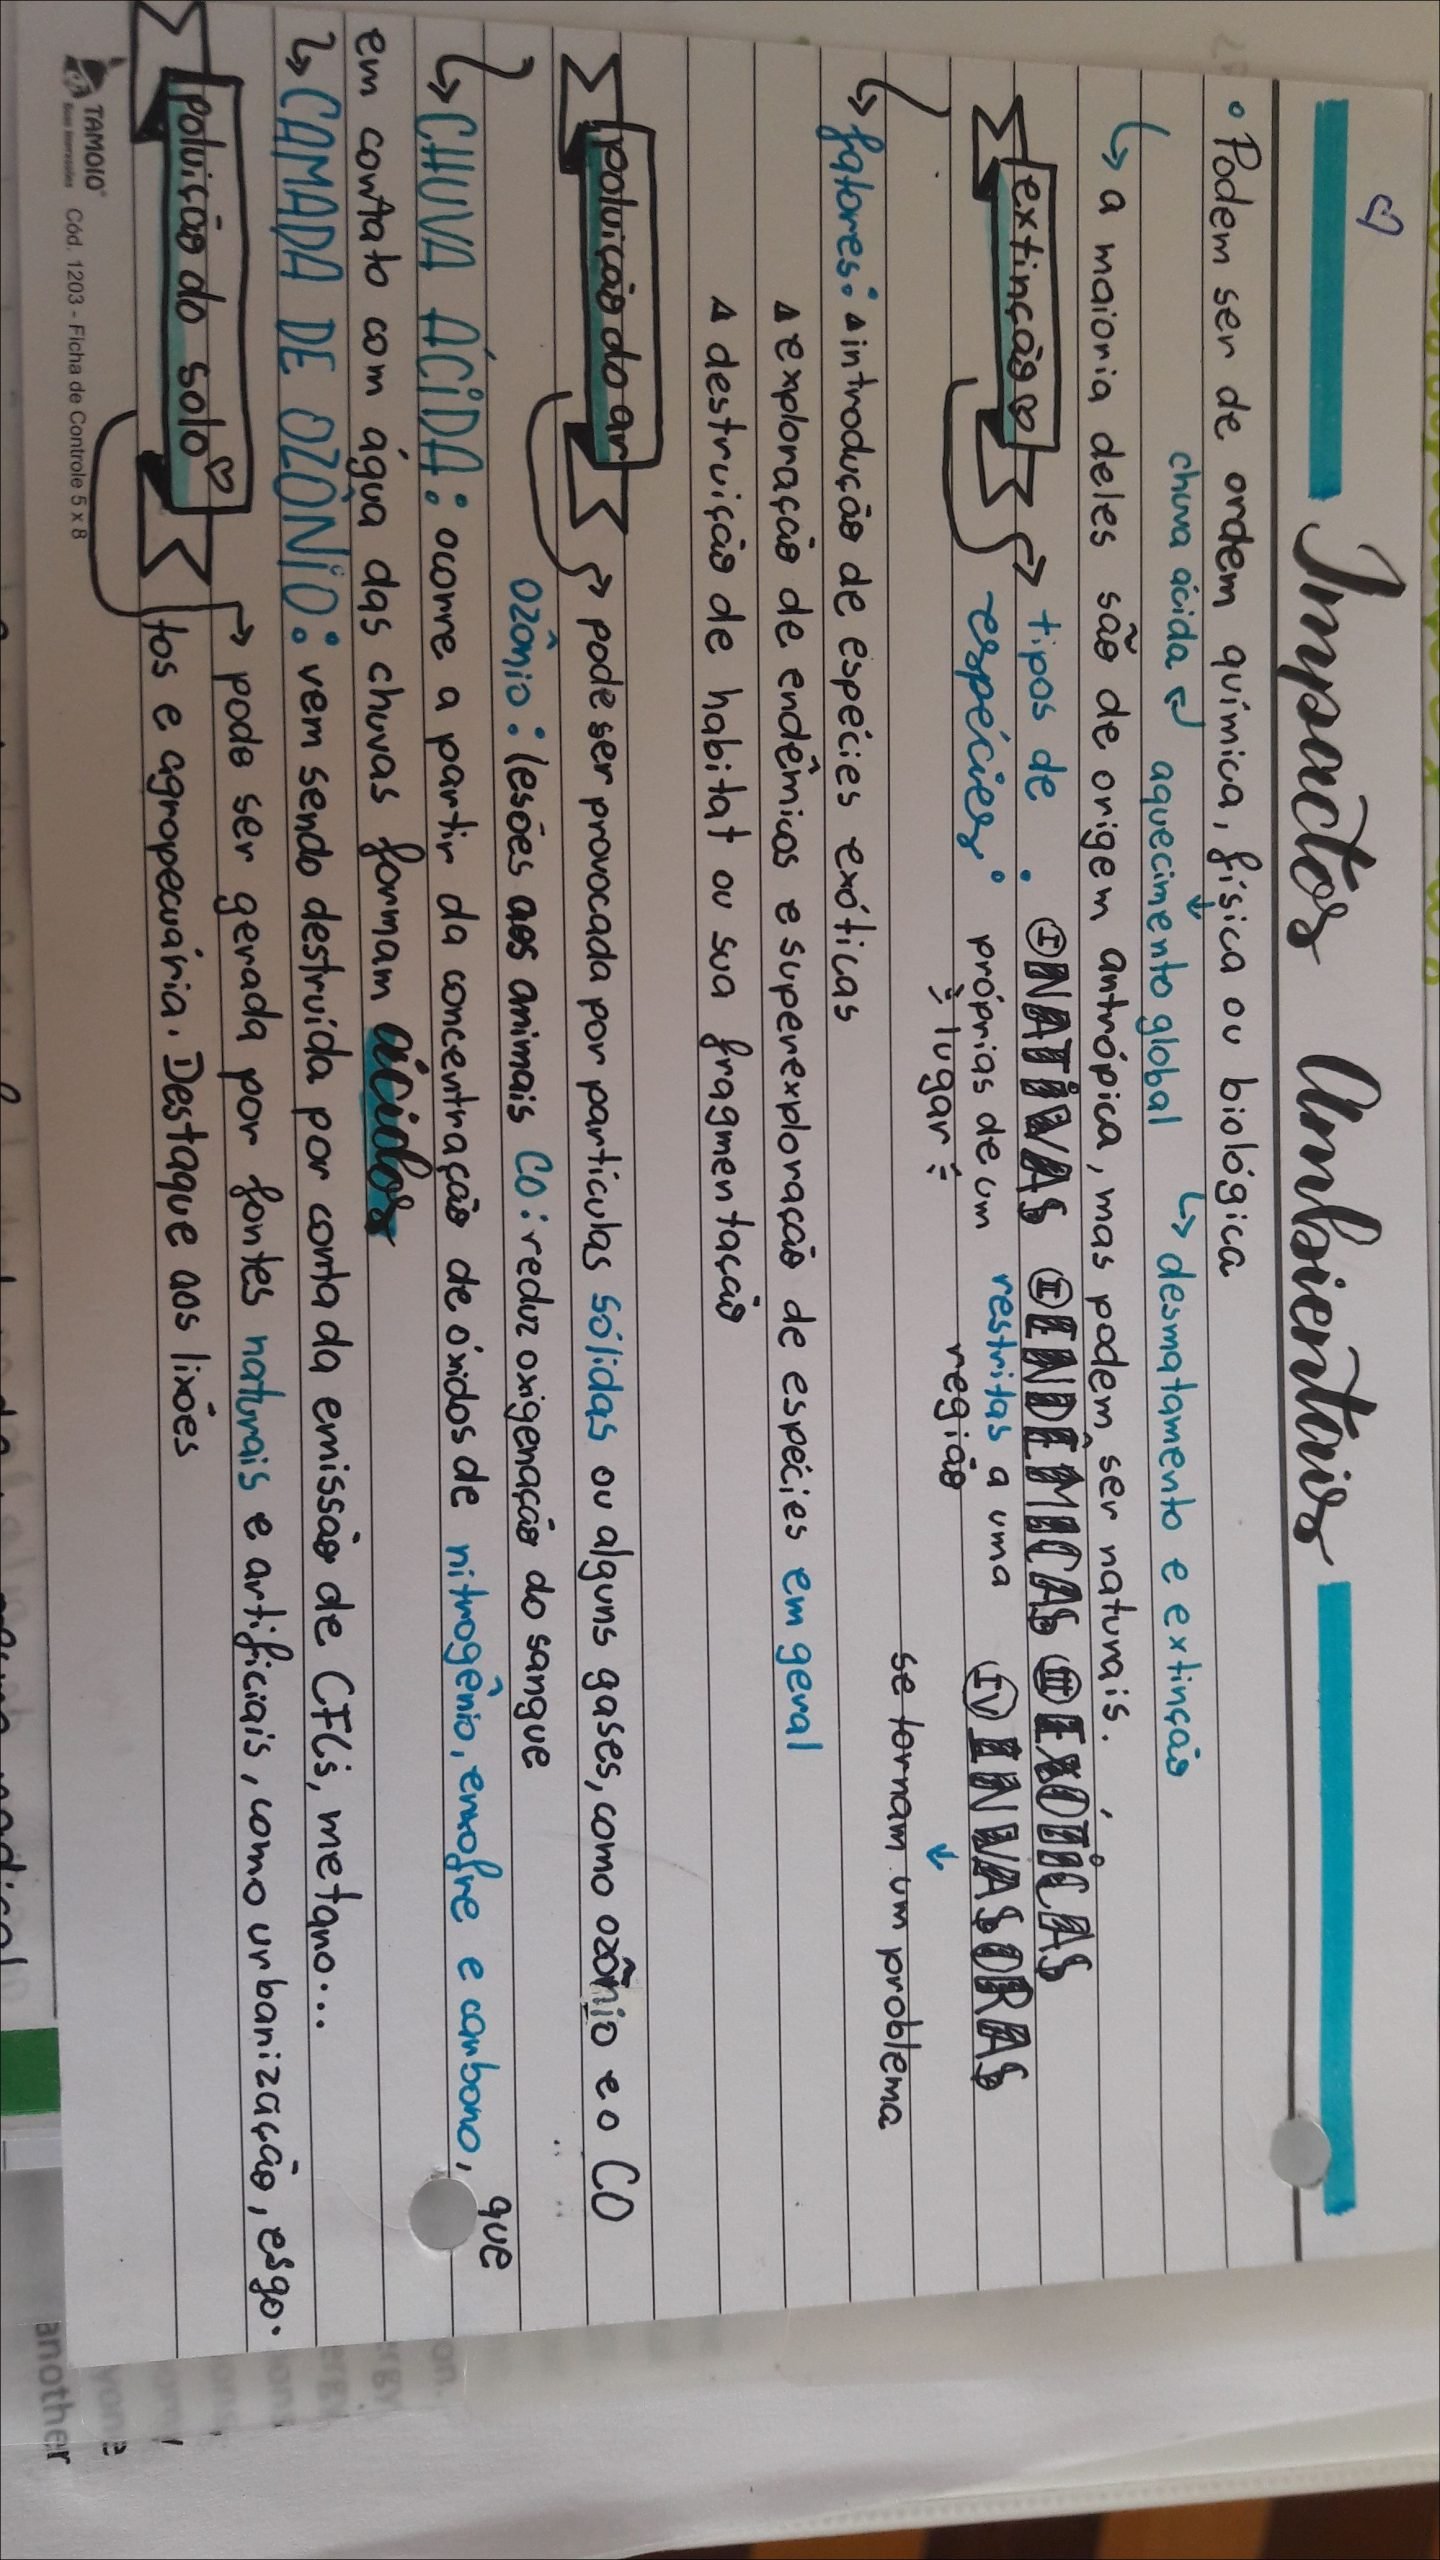 Impactos Ambientais
• Podem ser de ordem química, física ou biológica
chuva ácida ↵ aquecimento global ↳ desmatamento e extinção
↳ a maioria deles são de origem antrópica, mas podem ser naturais.
extinção ♡ → tipos de : Ⓘ NATIVAS Ⓘ ENDÊMICAS Ⓘ EXÓTICAS
espécies: próprias de um restritas a uma ⒾⓋ INVASORAS
lugar região
se tornam um problema
↳ fatores: ▵ introdução de espécies exóticas
▵ exploração de endêmicos e superexploração de espécies em geral
▵ destruição de habitat ou sua fragmentação
poluição do ar → pode ser provocada por partículas sólidas ou alguns gases, como ozônio e o CO
ozônio: lesões aos animais CO: reduz oxigenação do sangue
↳ CHUVA ÁCIDA: ocorre a partir da concentração de óxidos de nitrogênio, enxofre e carbono, que
em contato com água das chuvas formam ácidos
↳ CAMADA DE OZÔNIO: vem sendo destruída por conta da emissão de CFCs, metano...
poluição do solo ♡ → pode ser gerada por fontes naturais e artificiais, como urbanização, esgo-
tos e agropecuária. Destaque aos lixões
TAMOIO® Cód. 1203 - Ficha de Controle 5 x 8
another